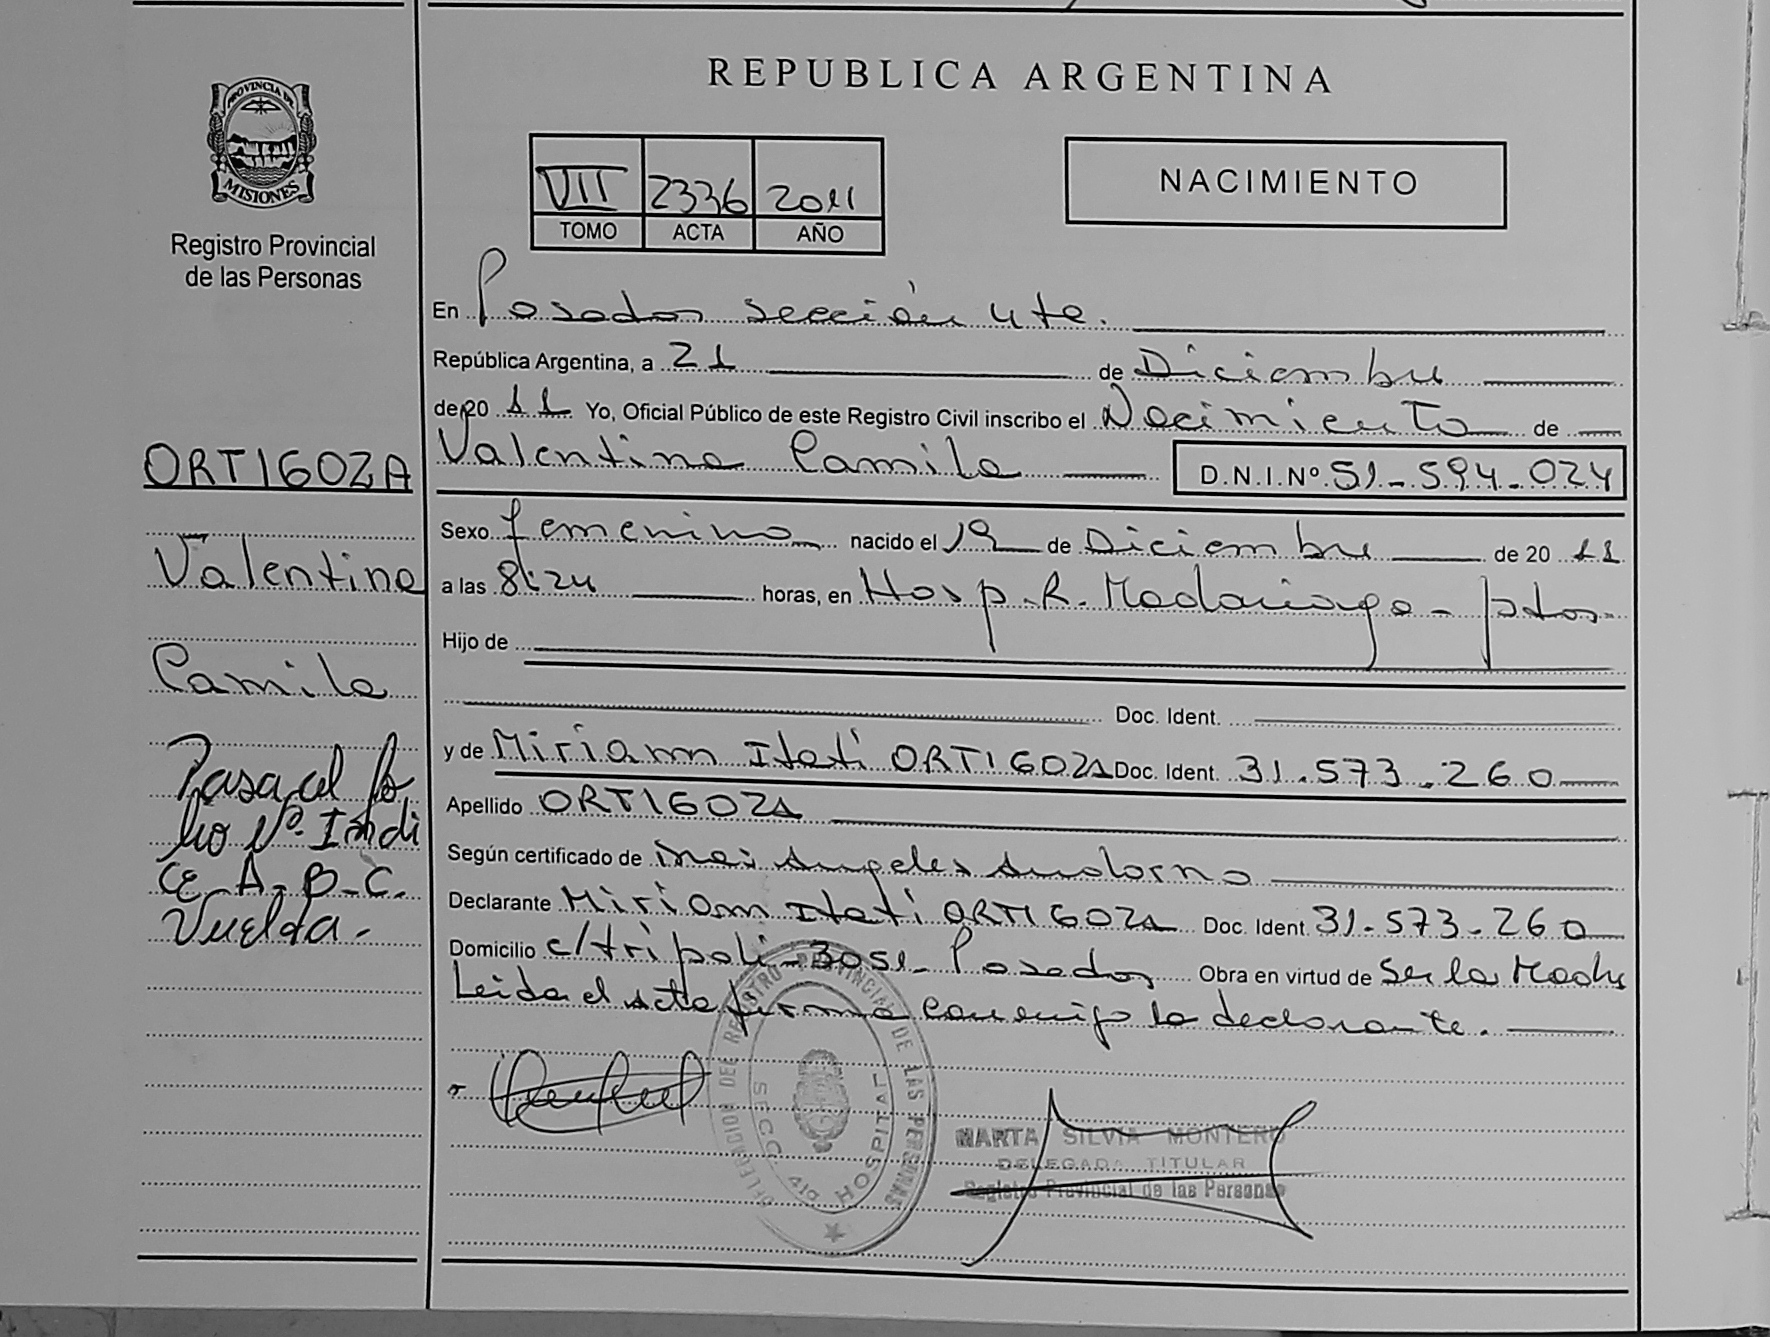 REPUBLICA ARGENTINA
PROVINCIA DE
MISIONES
Registro Provincial
de las Personas
VII 2336 2011
TOMO ACTA AÑO
NACIMIENTO
En Posadas sección 4ta.
República Argentina, a 21 de Diciembre
de 20 11 Yo, Oficial Público de este Registro Civil inscribo el Nacimiento de
Valentina Camila D.N.I.Nº 51-594-024
Sexo femenino nacido el 19 de Diciembre de 20 11
a las 8:24 horas, en Hosp. R. Madariaga - pdas.
Hijo de
Doc. Ident.
y de Miriam Itati ORTIGOZA Doc. Ident. 31.573.260
Apellido ORTIGOZA
Según certificado de Ines Angeles Andorno
Declarante Miriam Itati ORTIGOZA Doc. Ident. 31-573-260
Domicilio c/tripoli - 3051 - Posadas Obra en virtud de Ser la Madre
Leida el acta firma conmigo la declarante.
ORTIGOZA
Valentina
Camila
Pasa al fo
lio Nº. Indi
ce A-B-C.
Vuelta.
DELEGACION DEL REGISTRO PROVINCIAL DE LAS PERSONAS
SECC. 4ta HOSPITAL
MARTA SILVIA MONTERO
DELEGADA TITULAR
Registro Provincial de las Personas